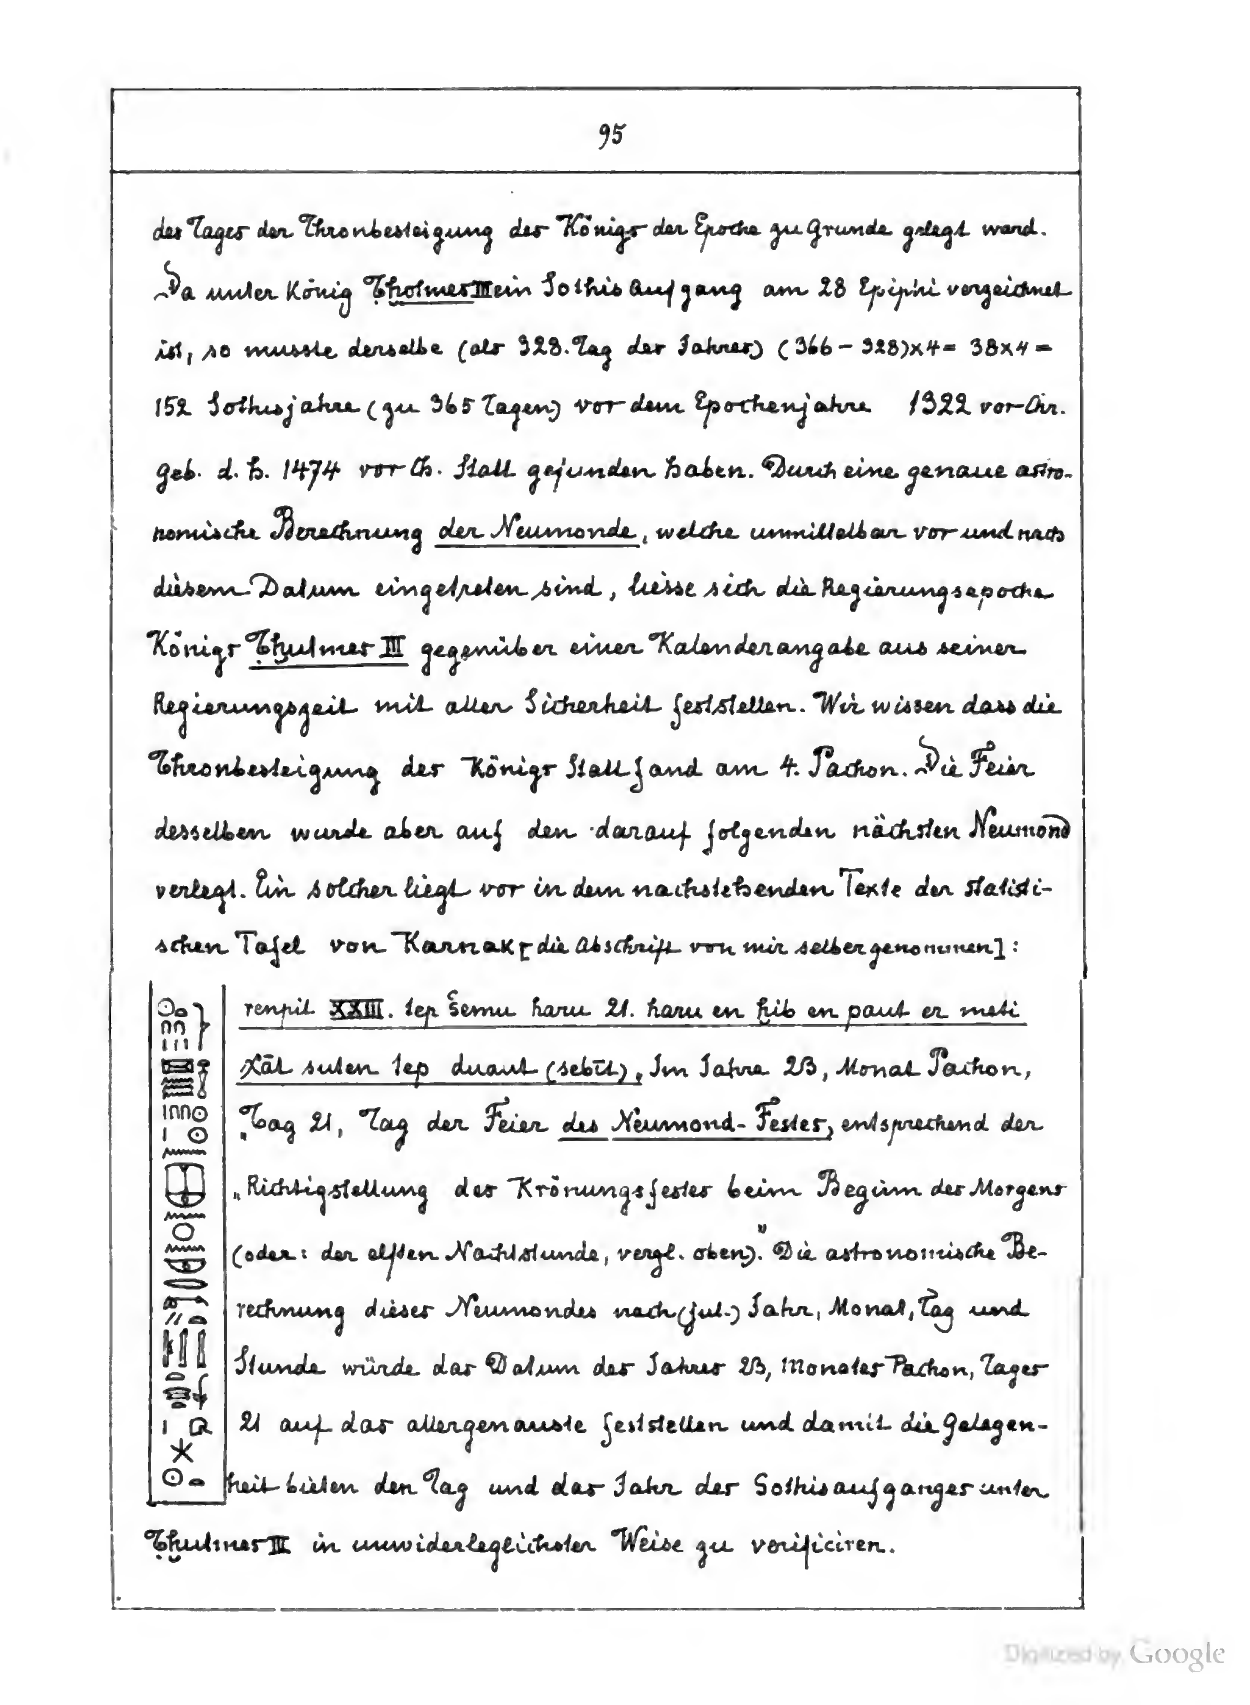 95
des Tages der Thronbesteigung des Königs der Epoche zu Grunde gelegt ward.
Da unter König Tḥotmes III ein Sothisaufgang am 28 Epiphi verzeichnet
ist, so musste derselbe (als 328. Tag des Jahres) (366 – 328)×4= 38×4=
152 Sothisjahre (zu 365 Tagen) vor dem Epochenjahre 1322 vor Chr.
geb. d. h. 1474 vor Ch. Statt gefunden haben. Durch eine genaue astro-
nomische Berechnung der Neumonde, welche unmittelbar vor und nach
diesem Datum eingetreten sind, liesse sich die Regierungsepoche
Königs Tḥutmes III gegenüber einer Kalenderangabe aus seiner
Regierungszeit mit aller Sicherheit feststellen. Wir wissen dass die
Thronbesteigung des Königs Statt fand am 4. Pachon. Die Feier
desselben wurde aber auf den darauf folgenden nächsten Neumond
verlegt. Ein solcher liegt vor in dem nachstehenden Texte der statisti-
schen Tafel von Karnak [die Abschrift von mir selber genommen]:
renpit XXIII. tep šemu haru 21. haru en ḥib en paut er meti
χāt suten tep duaut (sebūt), Im Jahre 23, Monat Pachon,
„Tag 21, Tag der Feier des Neumond-Festes, entsprechend der
„Richtigstellung des Krönungsfestes beim Beginn des Morgens
(oder: der elften Nachtstunde, vergl. oben)." Die astronomische Be-
rechnung dieses Neumondes nach (jul.) Jahr, Monat, Tag und
Stunde würde das Datum des Jahres 23, Monates Pachon, Tages
21 auf das allergenauste feststellen und damit die Gelegen-
heit bieten den Tag und das Jahr des Sothisaufganges unter
Tḥutmes III in unwiderleglichster Weise zu verificiren.
Digitized by Google